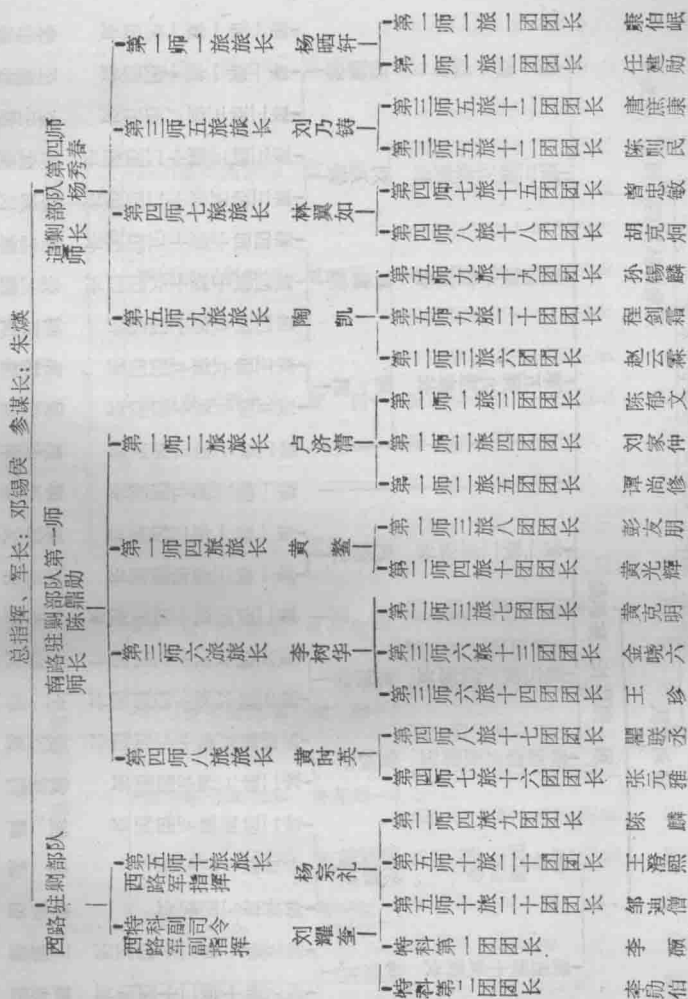 总指挥、军长：邓锡侯　参谋长：朱煐
追剿部队第四师
师长　杨秀春
第一师一旅旅长　杨晒轩
第一师一旅一团团长　康伯岷
第一师一旅二团团长　任建勋
第三师五旅旅长　刘乃铸
第三师五旅十二团团长　唐庶康
第三师五旅十二团团长　陈则民
第四师七旅旅长　林翼如
第四师七旅十五团团长　曾忠敏
第四师八旅十八团团长　胡克炯
第五师九旅旅长　陶　凯
第五师九旅十九团团长　孙锡麟
第五师九旅二十团团长　程剑霜
第一师三旅六团团长　赵云霖
南路驻剿部队第一师
师长　陈鼎勋
第一师二旅旅长　卢济清
第一师一旅三团团长　陈郁文
第一师二旅四团团长　刘家仲
第一师二旅五团团长　谭尚修
第一师四旅旅长　黄　鳌
第一师三旅八团团长　彭友朋
第二师四旅十团团长　黄光辉
第三师六旅旅长　李树华
第二师三旅七团团长　黄克明
第三师六旅十三团团长　金晓六
第三师六旅十四团团长　王　珍
第四师八旅旅长　黄时英
第四师八旅十七团团长　瞿联丞
第四师七旅十六团团长　张元雅
西路驻剿部队
第五师十旅旅长
西路军指挥　杨宗礼
第二师四旅九团团长　陈　麟
第五师十旅二十团团长　王澄熙
第五师十旅二十团团长　邹迪僧
特科副司令
西路军副指挥　刘耀奎
特科第一团团长　李　硕
特科第二团团长　李勋伯